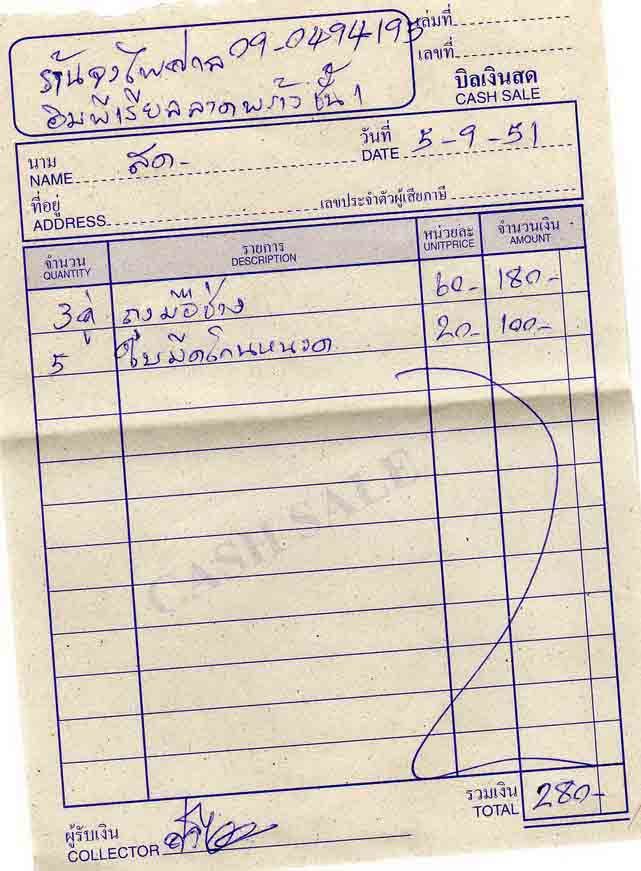 ร้านจงไพศาล 09-0494195
อิมพีเรียลลาดพร้าว ชั้น 1
เล่มที่
เลขที่
บิลเงินสด
CASH SALE
นาม
NAME สด-
วันที่
DATE 5-9-51
ที่อยู่
ADDRESS
เลขประจำตัวผู้เสียภาษี
จำนวน
QUANTITY
รายการ
DESCRIPTION
หน่วยละ
UNITPRICE
จำนวนเงิน
AMOUNT
3คู่ ถุงมือช่าง 60- 180-
5 ใบมีดโกนหนวด 20- 100-
CASH SALE
รวมเงิน
TOTAL 280-
ผู้รับเงิน
COLLECTOR